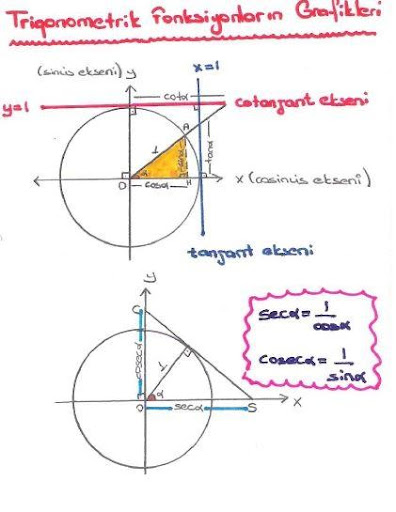 Trigonometrik Fonksiyonların Grafikleri
(sinüs ekseni) y
x=1
cotα
y=1
cotanjant ekseni
A
1
sinα
tanα
α
O
cosα
H
x (cosinüs ekseni)
tanjant ekseni
y
C
cosecα
1
α
O
secα
S
x
secα = 1/cosα
cosecα = 1/sinα